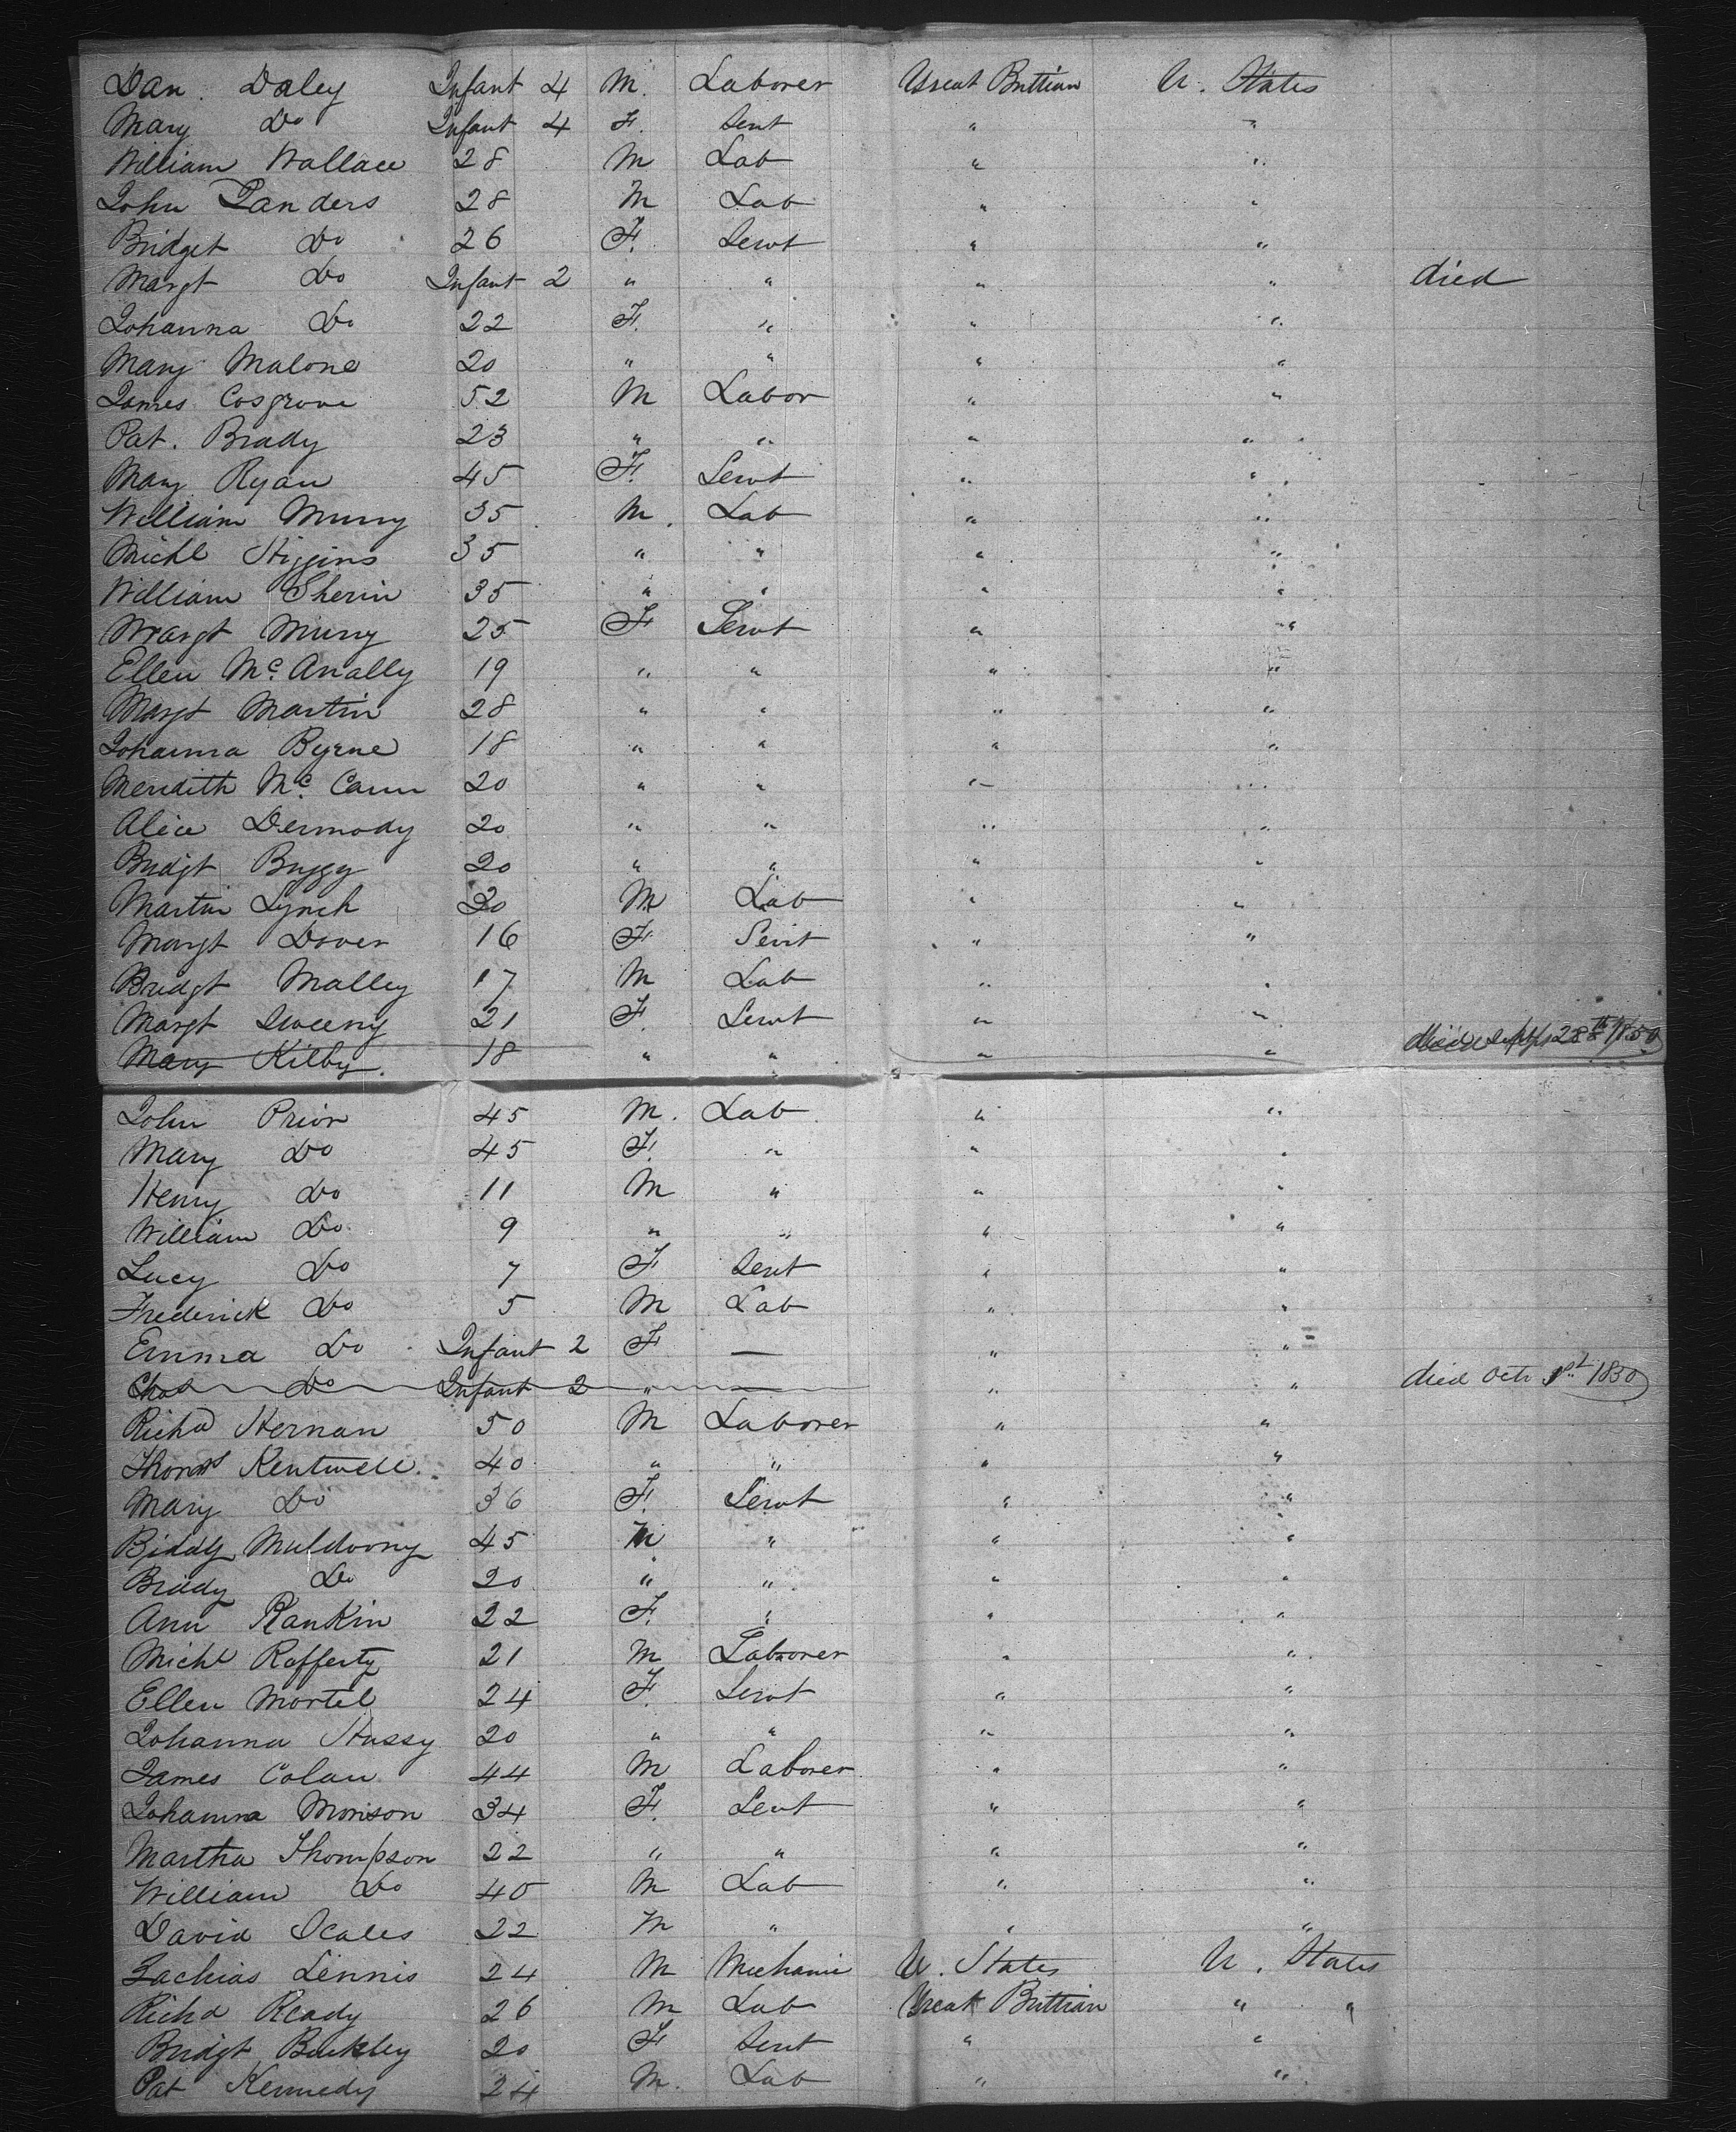 Dan. Daley Infant 4 M. Laborer Great Brittian U. States
Mary Do Infant 4 F. Sevt " "
William Wallace 28 M Lab " "
John Landers 28 M Lab " "
Bridget Do 26 F. Servt " "
Margt Do Infant 2 " " " " died
Johanna Do 22 F. " " "
Mary Malone 20 " " " "
James Cosgrove 52 M Labor " "
Pat. Brady 23 " " " "
Mary Ryan 45 F. Servt " "
William Murry 35 M. Lab " "
Michl Higgins 35 " " " "
William Sherin 35 " " " "
Margt Murry 25 F Servt " "
Ellen Mc. Anally 19 " " " "
Margt Martin 28 " " " "
Johanna Byrne 18 " " " "
Meridith Mc. Cann 20 " " " "
Alice Dermody 20 " " " "
Bridgt Buggy 20 " " " "
Martin Lynch 30 M Lab " "
Margt Dover 16 F. Servt " "
Bridgt Malley 17 M Lab " "
Margt Sweeny 21 F. Servt " "
Mary Kilby. 18 " " " " died 28th 1850
John Prior 45 M. Lab " "
Mary Do 45 F. " " "
Henry Do 11 M " " "
William Do 9 " " " "
Lucy Do 7 F Servt " "
Frederick Do 5 M Lab " "
Emma Do Infant 2 F — " "
Chas Do Infant 2 " — " " died Octr 1st 1850
Richd Hernan 50 M Laborer " "
Thomas Kentwell 40 " " " "
Mary Do 36 F. Servt " "
Biddy Muldoony 45 M " " "
Biddy Do 20 " " " "
Ann Rankin 22 F. " " "
Michl Rafferty 21 M Laborer " "
Ellen Mortel 24 F. Servt " "
Johanna Hussy 20 " " " "
James Colan 44 M Laborer " "
Johanna Morison 34 F. Servt " "
Martha Thompson 22 " " " "
William Do 40 M Lab " "
David Scales 22 M " " "
Zachias Lennis 24 M Mechanic U. States U. States
Richd Ready 26 M Lab Great Brittian " "
Bridgt Buckley 20 F Servt " "
Pat Kennedy 24 M. Lab " "